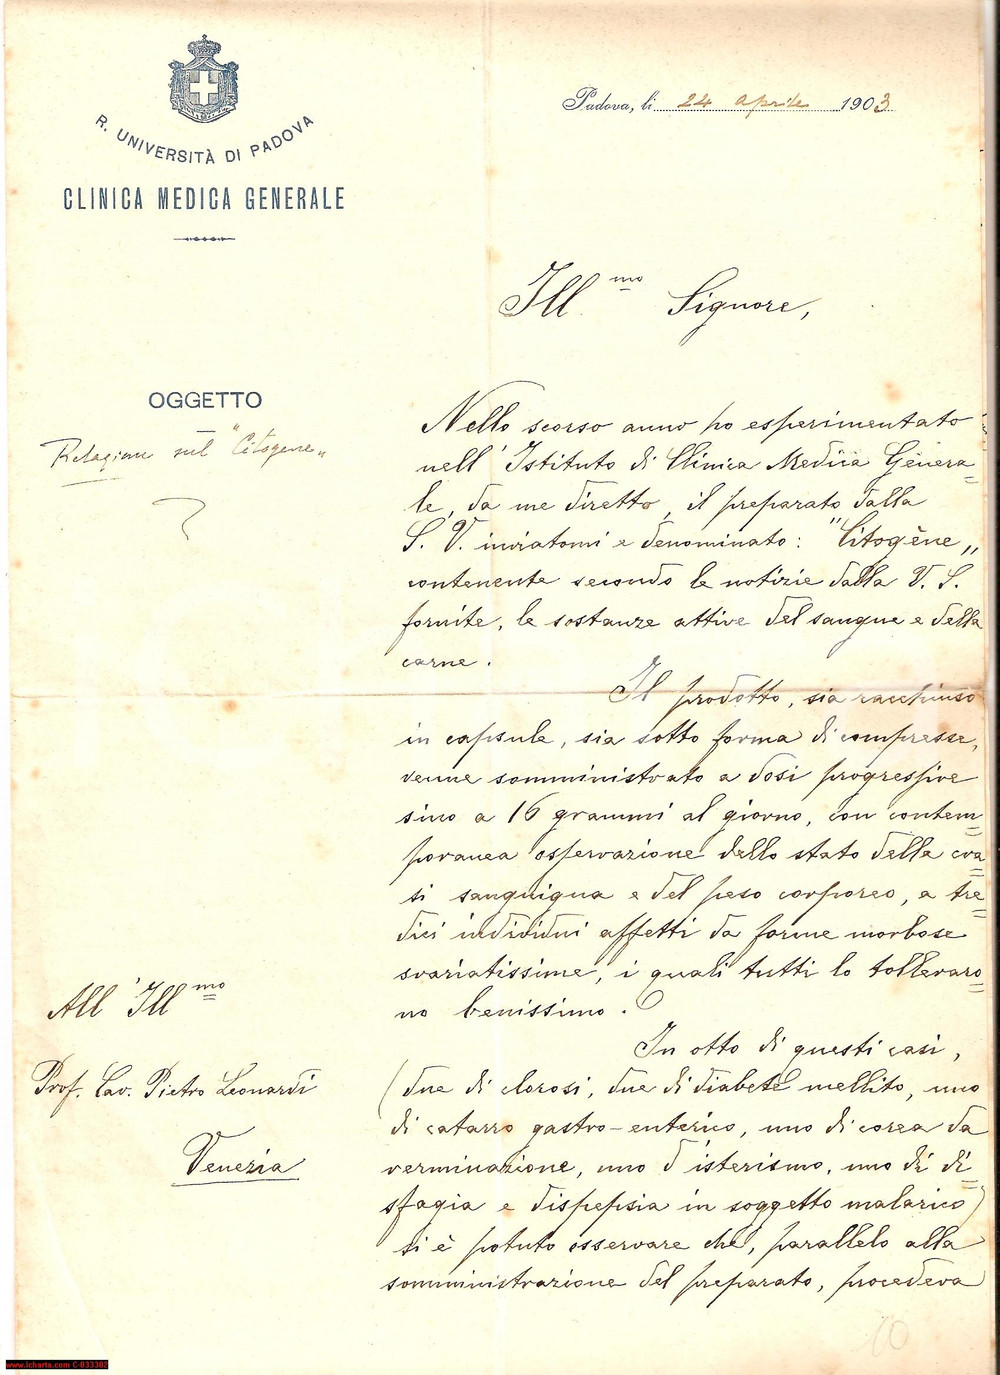 R. UNIVERSITÀ DI PADOVA
CLINICA MEDICA GENERALE
Padova, li 24 aprile 1903
Ill.mo Signore,
OGGETTO
Relazione sul "Citogene„
Nello scorso anno ho esperimentato
nell'Istituto di Clinica Medica Genera=
le, da me diretto, il preparato dalla
S. V. inviatomi e denominato: "Citogène„
contenente secondo le notizie dalla V. S.
fornite, le sostanze attive del sangue e della
carne.
Il prodotto, sia racchiuso
in capsule, sia sotto forma di compresse,
venne somministrato a dosi progressive
sino a 16 grammi al giorno, con contem=
poranea osservazione dello stato della cra=
si sanguigna e del peso corporeo, a tre=
dici individui affetti da forme morbose
svariatissime, i quali tutti lo tollevaro=
no benissimo.
In otto di questi casi,
(due di clorosi, due di diabete mellito, uno
di catarro gastro-enterico, uno di corea da
verminazione, uno d'isterismo, uno di di=
sfagia e dispepsia in soggetto malarico)
si è potuto osservare che, parallelo alla
somministrazione del preparato, procedeva
All'Ill.mo
Prof. Cav. Pietro Leonardi
Venezia
10
www.icharta.com C-033302